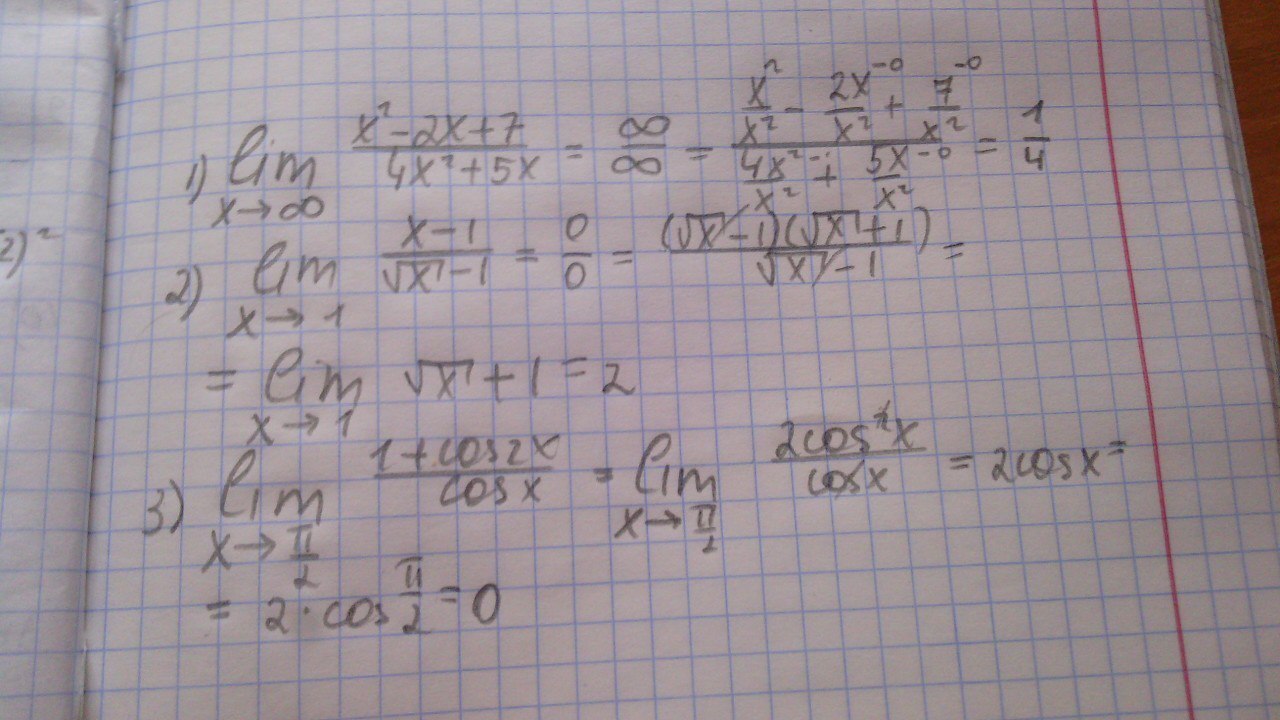 1) lim x→∞ (x²-2x+7)/(4x²+5x) = ∞/∞ = (x²/x² - 2x/x²→0 + 7/x²→0)/(4x²/x² + 5x/x²→0) = 1/4
2) lim x→1 (x-1)/(√x-1) = 0/0 = (√x-1)(√x+1)/(√x-1) =
= lim x→1 √x+1 = 2
3) lim x→π/2 (1+cos2x)/(cosx) = lim x→π/2 (2cos²x)/(cosx) = 2cosx =
= 2·cos π/2 = 0
2)²